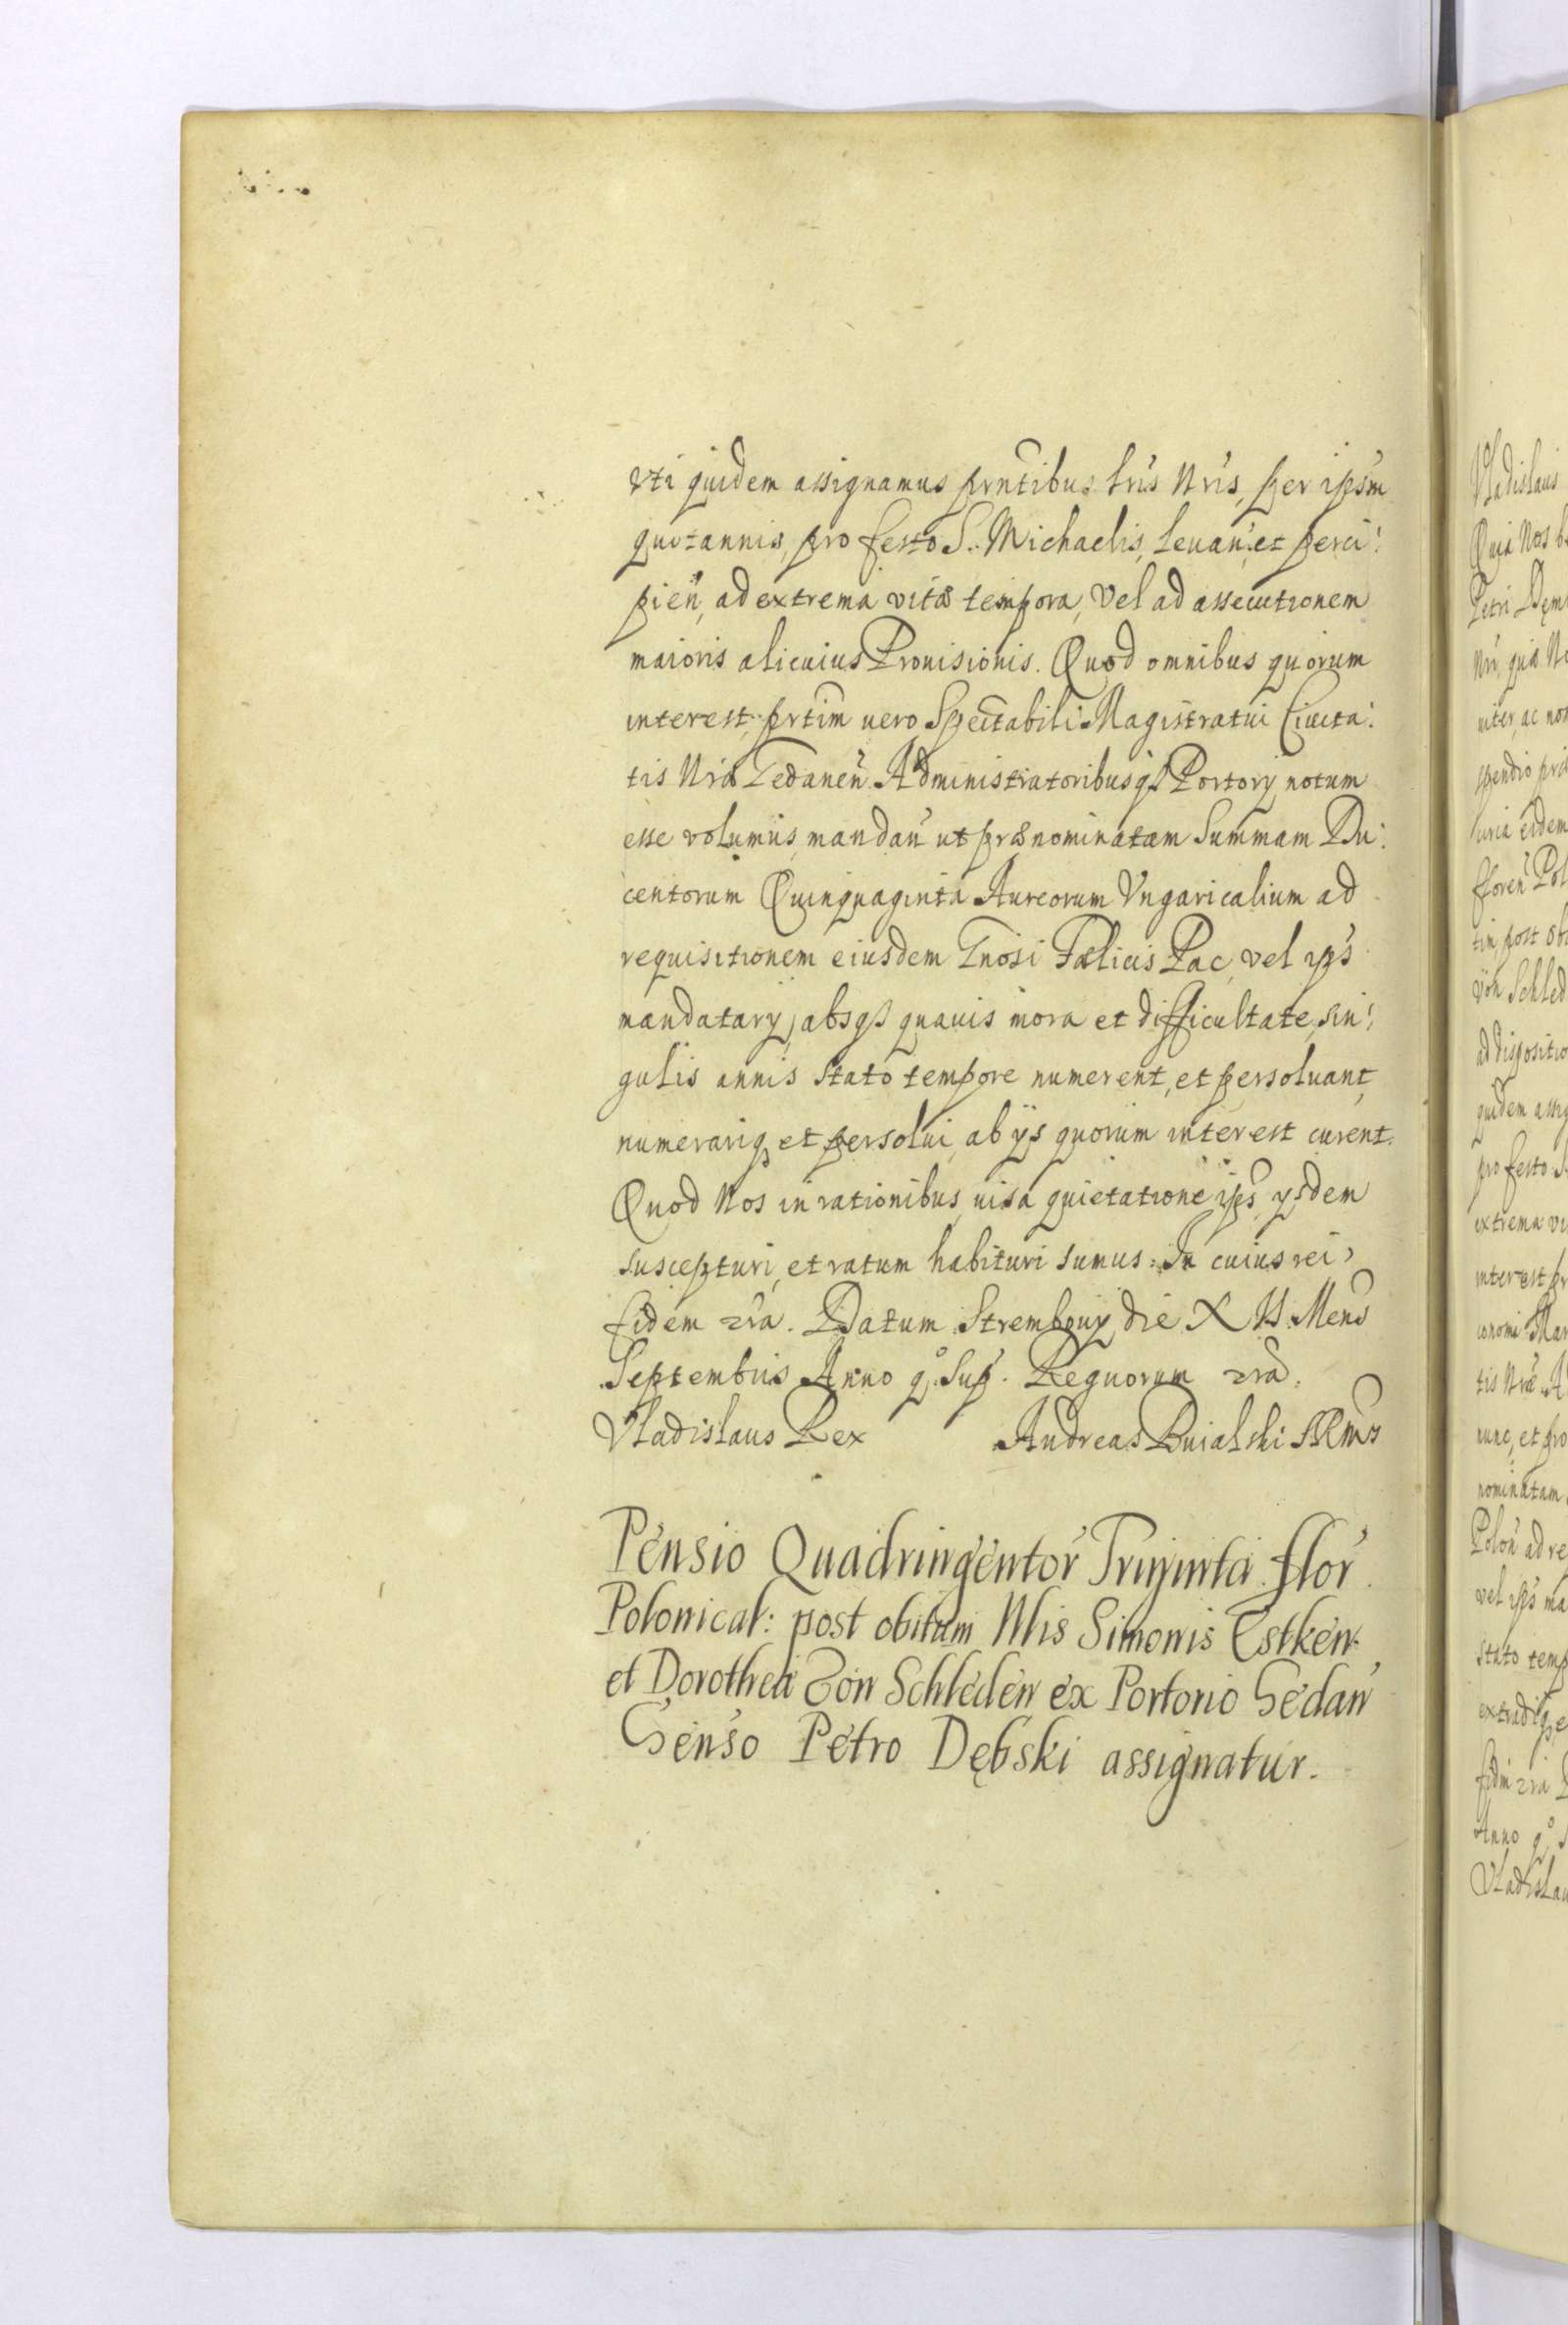 Vti quidem assignamus prntibus Lris Nris, per ipsm
quotannis, pro festo S. Michaelis, Leuan: et perci:
pien, ad extrema vitæ tempora, vel ad assecutionem
maioris alicuius Prouisionis. Quod omnibus quorum
interest, prtim uero Spectabili Magistratui Ciuita:
tis Nræ Gedanen Administratoribusqß Portorij notum
esse volumus, mandan ut prænominatam Summam Du:
centorum Quinquaginta Aureorum Vngaricalium ad
requisitionem eiusdem Gnosi Fælicis Pac, vel ips
mandatarij, absqß quauis mora et difficultate, sin:
gulis annis stato tempore numerent, et persoluant,
numerariq et persolui, ab ijs quorum interest curent.
Quod Nos in rationibus, uisa quietatione ips, ysdem
suscepturi, et ratum habituri sumus. In cuius rei
fidem 2ra. Datum die Mens
Septembris Anno qo. Sup. Regnorum 2ra.
Vladislaus Rex Andreas Buialski SRMs
Pensio Quadringentor Triginta flor
Polonical: post obitum Nlis Simonis Estken
et Dorotheæ Von Schleden ex Portorio Gedan
Genso Petro Dębski assignatur.
Vladislaus
Quia Nos
Petri
Nri, quia
uiter, ac non
spendio
eidem
floren Pol
tin, post
Von Schled
ad dispositio
quidem assig
pro festo
extrema
interest
conomi Mar
tis Nræ A
nunc, et pro
nominatam
Polon ad re
vel ips ma
stato temp
extradiq
fidm 2ra
Anno qo
Vladislau